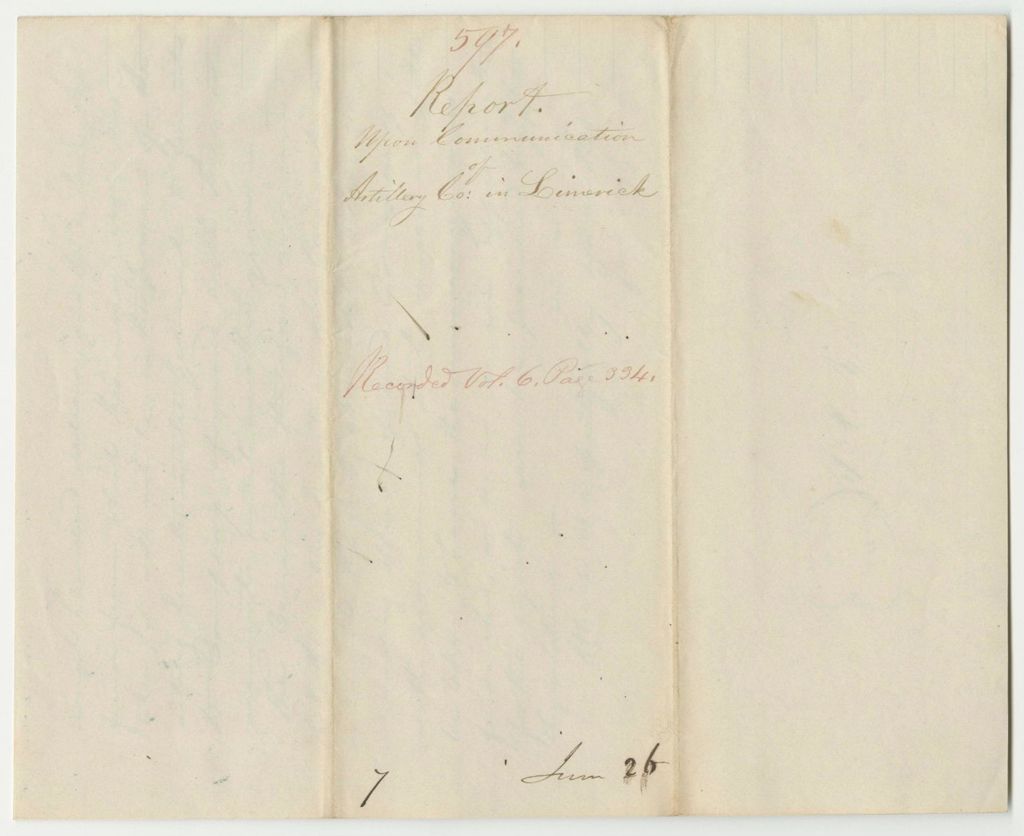 597.
Report.
Upon Communication
of
Artillery Co: in Limerick
Recorded Vol. 6. Page 334.
7 June 26